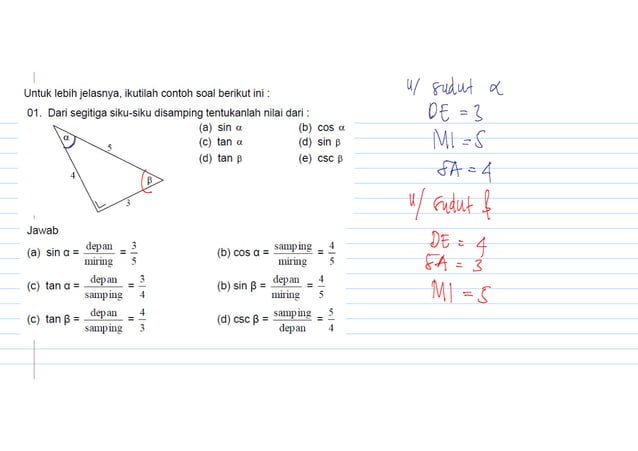 Untuk lebih jelasnya, ikutilah contoh soal berikut ini :
01. Dari segitiga siku-siku disamping tentukanlah nilai dari :
(a) sin α (b) cos α
(c) tan α (d) sin β
(d) tan β (e) csc β
α
5
4
β
3
Jawab
(a) sin α = depan/miring = 3/5 (b) cos α = samping/miring = 4/5
(c) tan α = depan/samping = 3/4 (b) sin β = depan/miring = 4/5
(c) tan β = depan/samping = 4/3 (d) csc β = samping/depan = 5/4
u/ sudut α
DE = 3
MI = 5
SA = 4
u/ sudut β
DE = 4
SA = 3
MI = 5